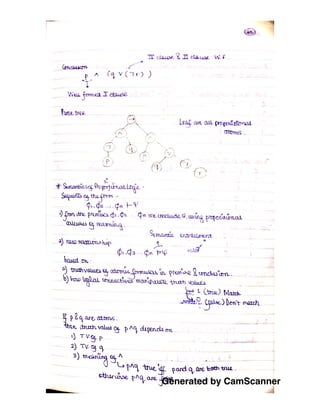 Conclusion
p ∧ (q ∨ (¬r))
Well formed
Parse tree
Leaf are all propositional
atoms.
* Semantics of Propositional Logic -
Sequents of the form -
φ₁, φ₂ ... φn ⊢ ψ
1) from the premises φ₁, φ₂ .. φn we conclude ψ using propositional
calculus of
Semantic entailment
2) new relationship
φ₁, φ₂ ... φn ⊨ ψ
based on
a) truth values of atomic formulas in premise & conclusion.
b) how logical connectives manipulate truth values
1 (true) Match
(false) Don't match
If p & q are atoms.
then truth value of p∧q depends on
1) TV of p
2) TV of q
3) meaning of ∧
p∧q true iff p and q are both true.
otherwise p∧q are
Generated by CamScanner